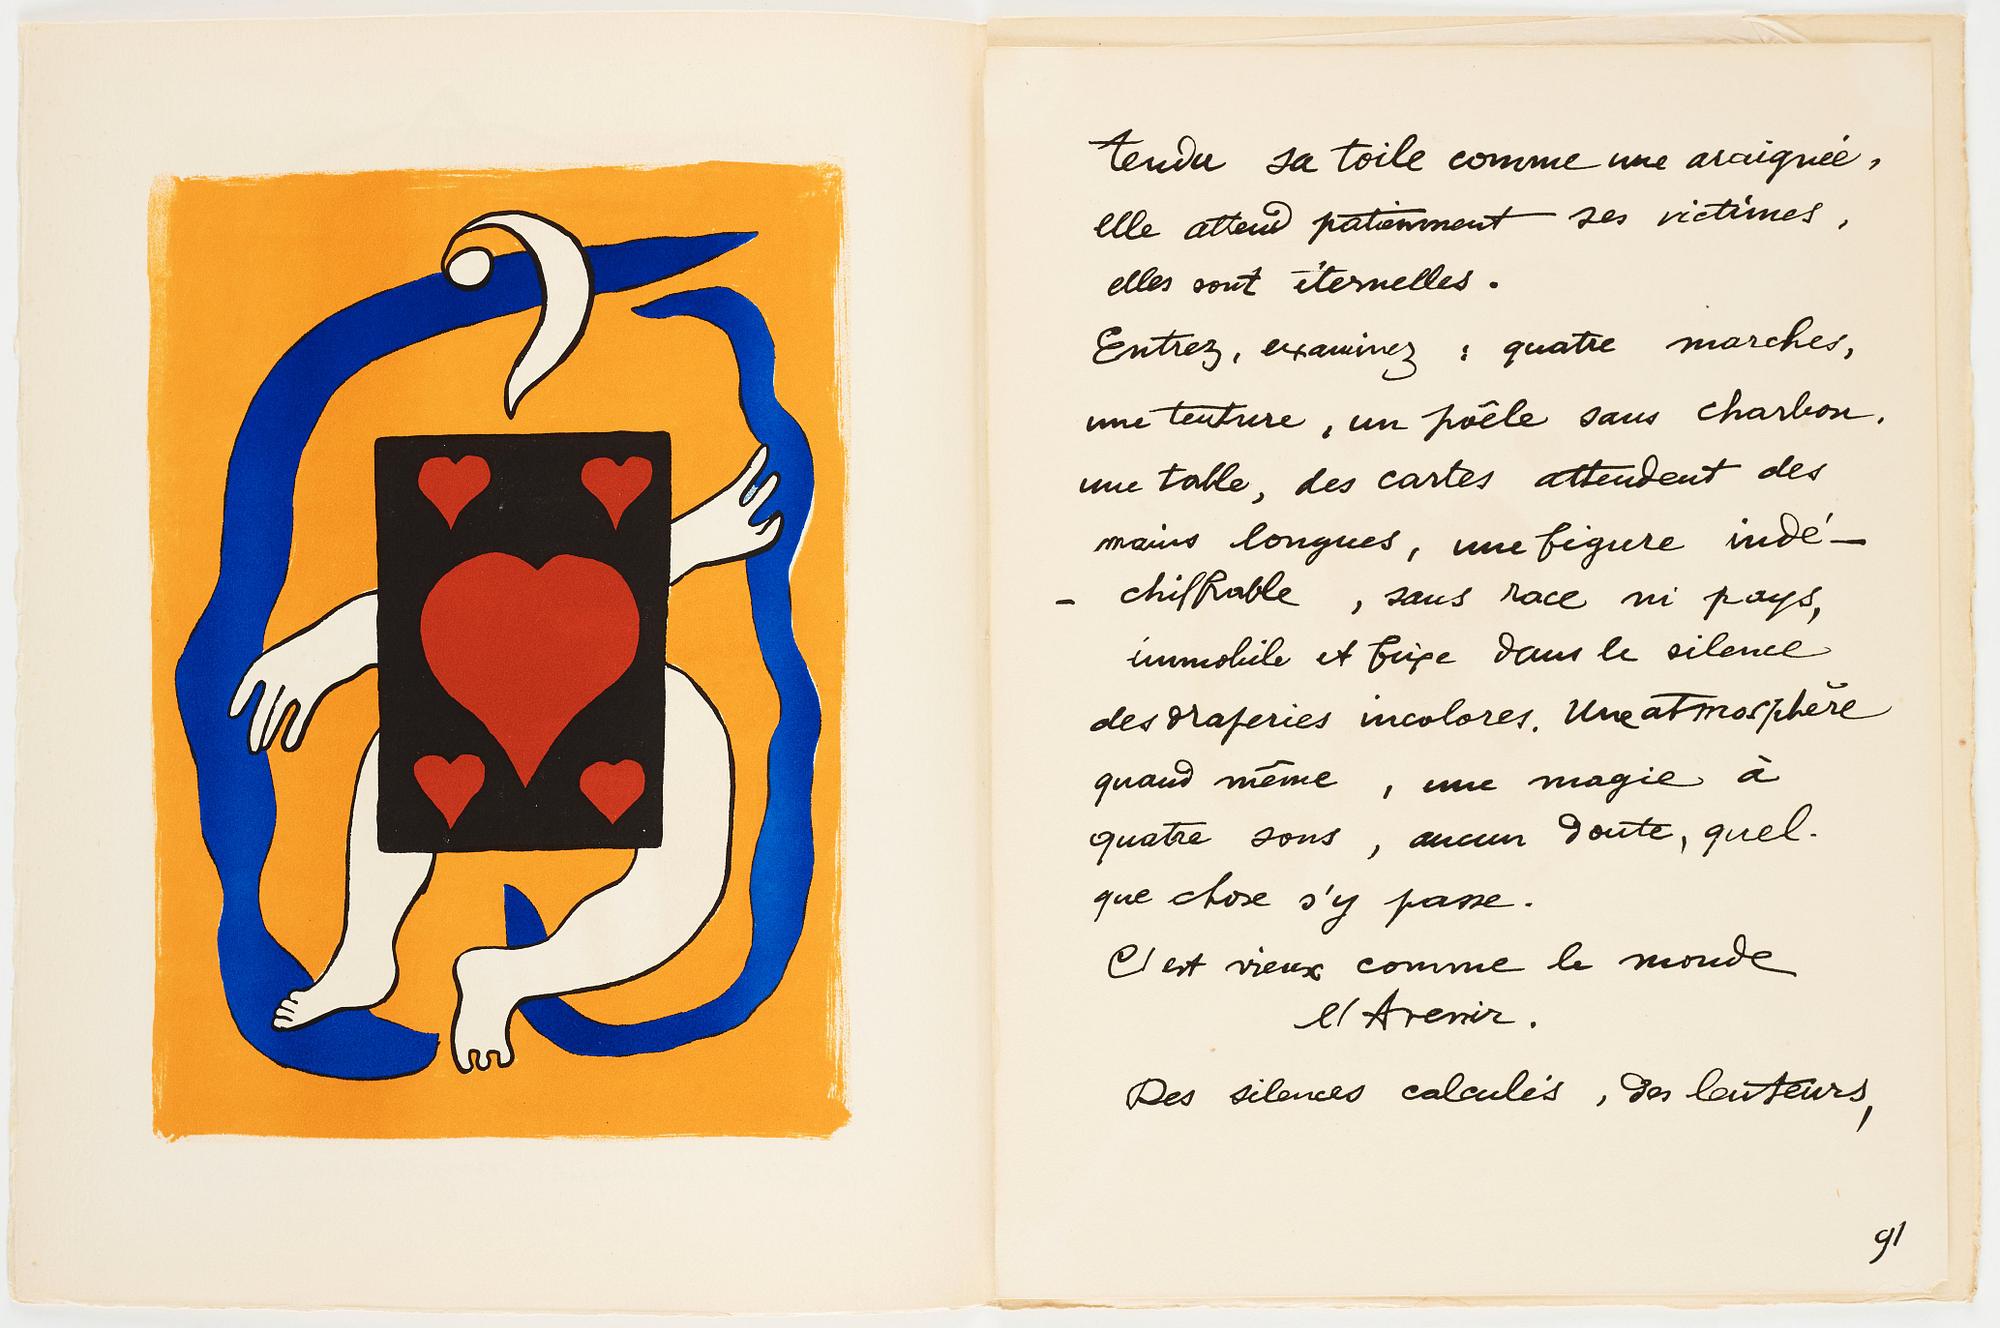 tendu sa toile comme une araignée,
elle attend patiemment ses victimes,
elles sont éternelles.
Entrez, examinez : quatre marches,
une tenture, un poêle sans charbon.
une table, des cartes attendent des
mains longues, une figure indé-
- chiffrable, sans race ni pays,
immobile et fixe dans le silence
des draperies incolores. Une atmosphère
quand même, une magie à
quatre sons, aucun doute, quel-
que chose s'y passe.
C'est vieux comme le monde
l'Avenir.
Des silences calculés, des lenteurs,
91